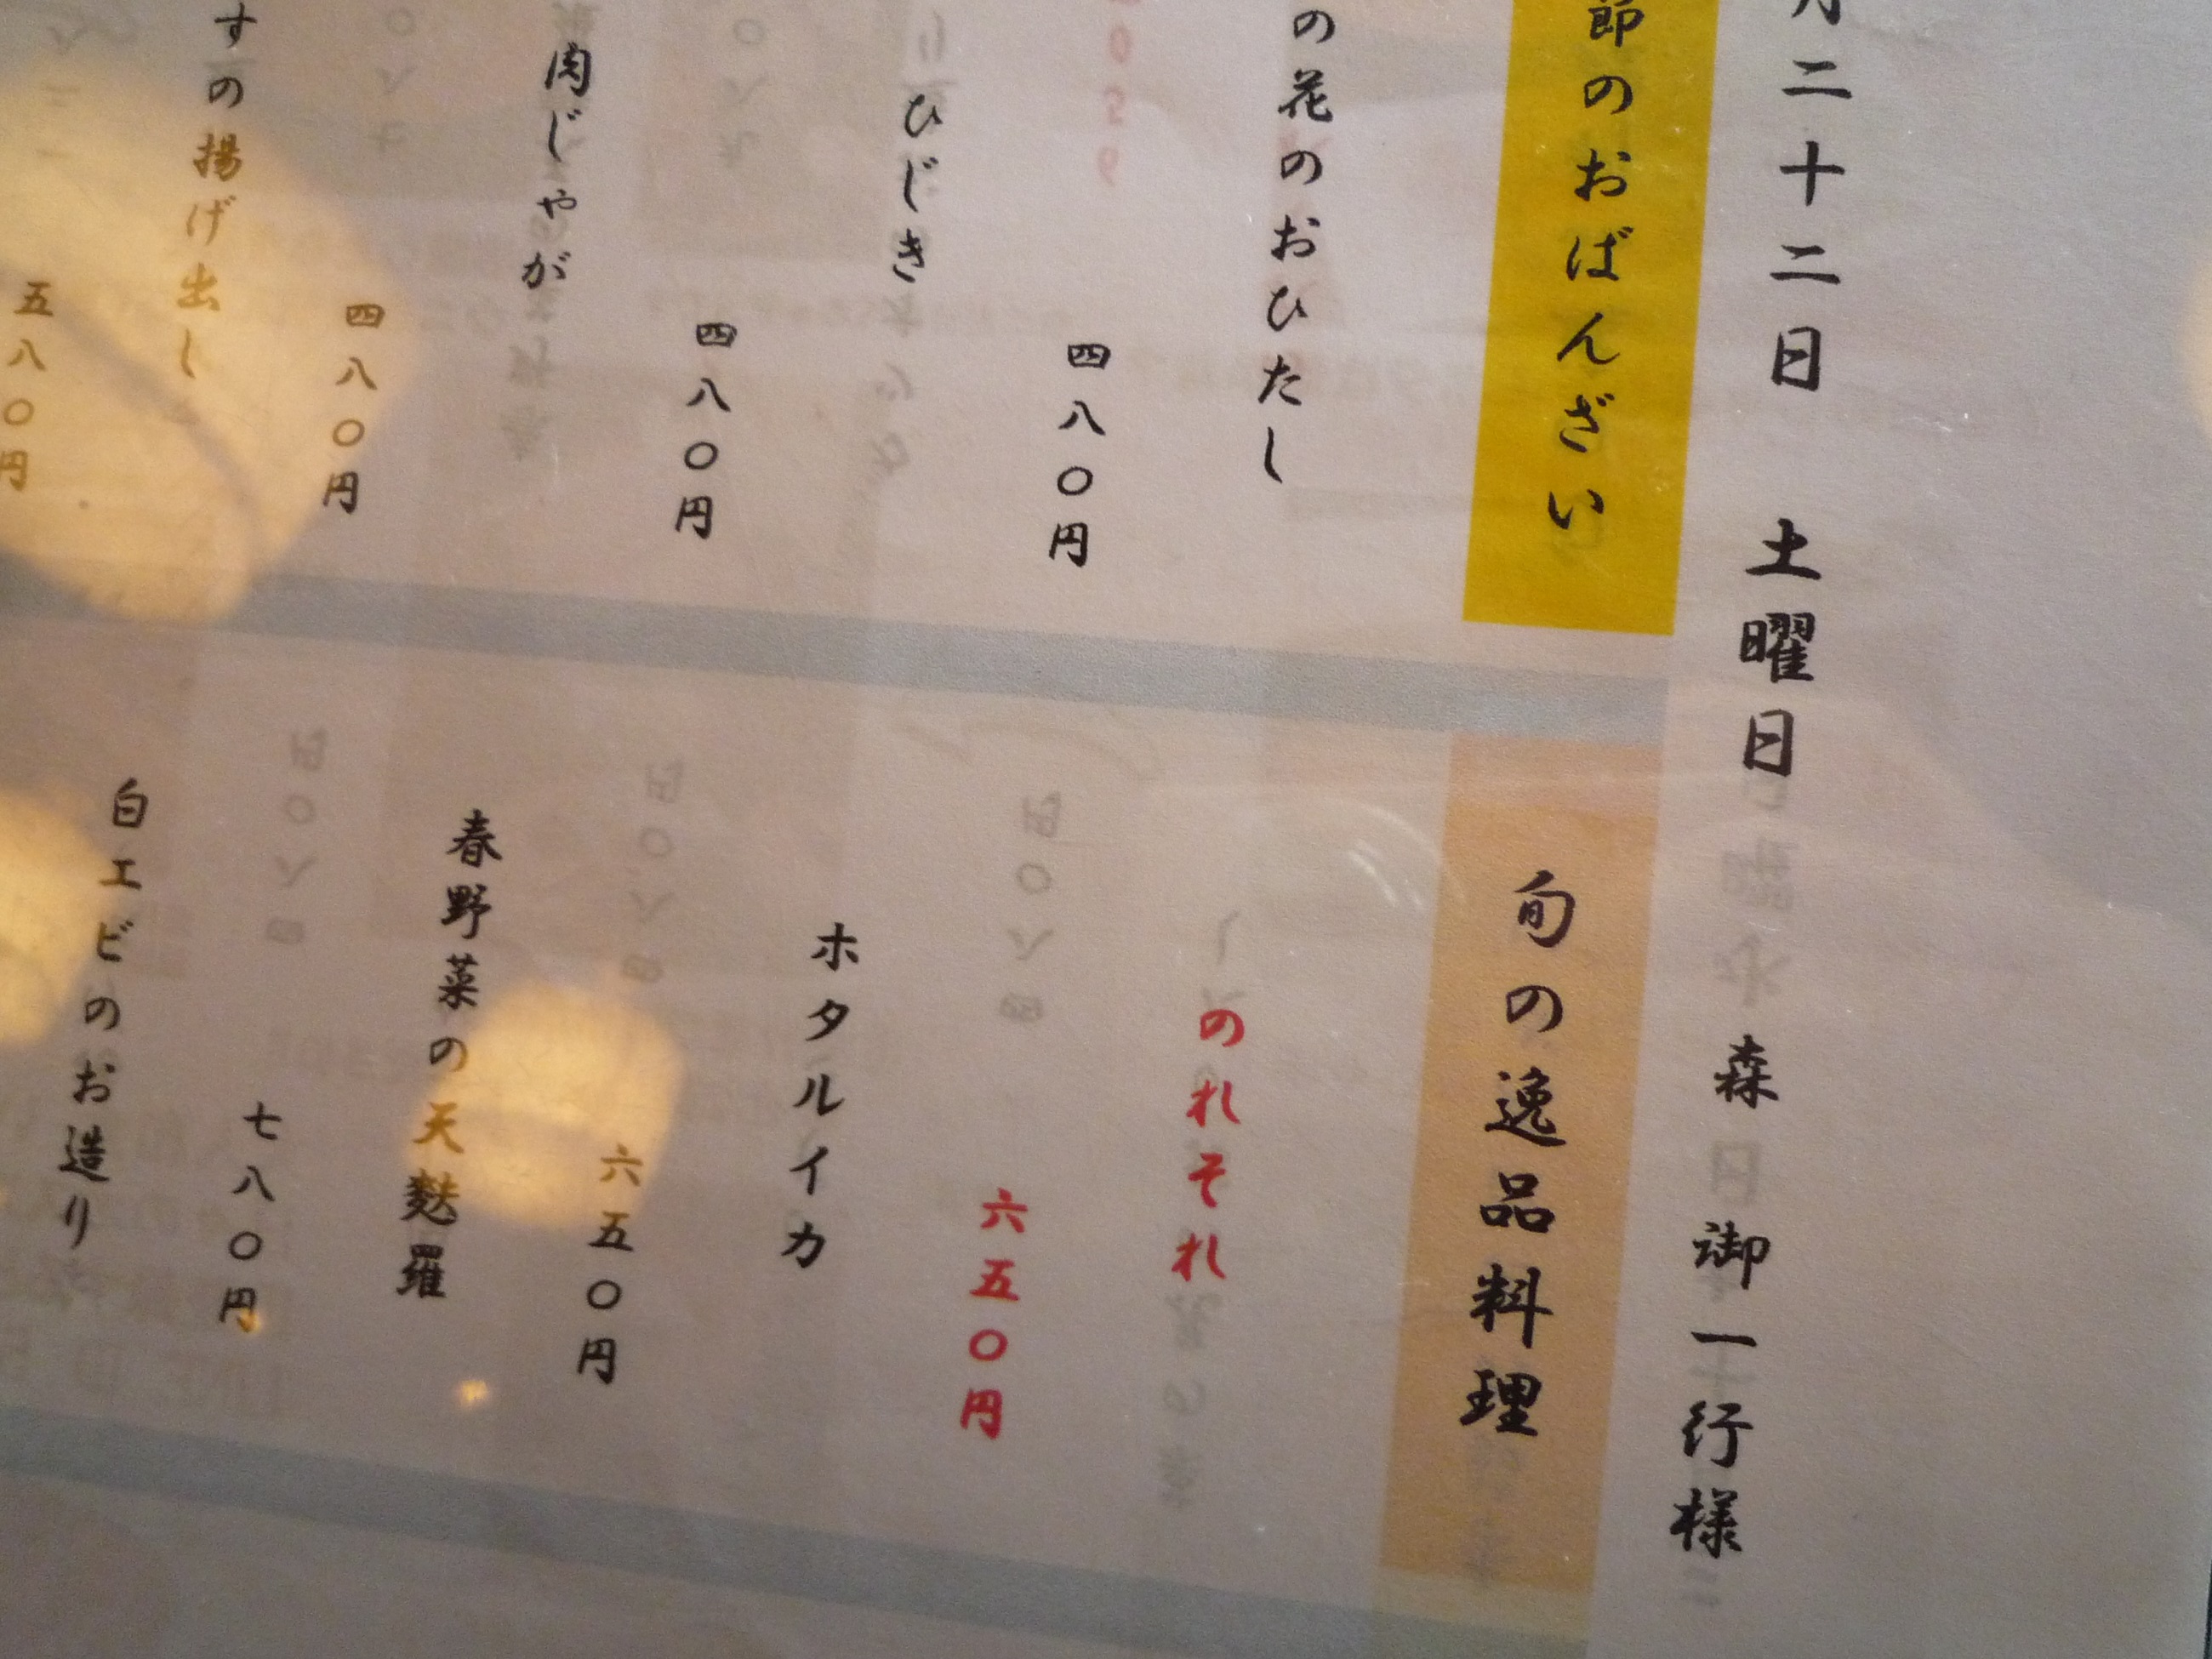 月二十二日 土曜日 森 御一行様
節のおばんざい
の花のおひたし
四八〇円
ひじき
四八〇円
肉じゃが
四八〇円
すの揚げ出し
五八〇円
旬の逸品料理
のれそれ
六五〇円
ホタルイカ
六五〇円
春野菜の天麩羅
七八〇円
白エビのお造り